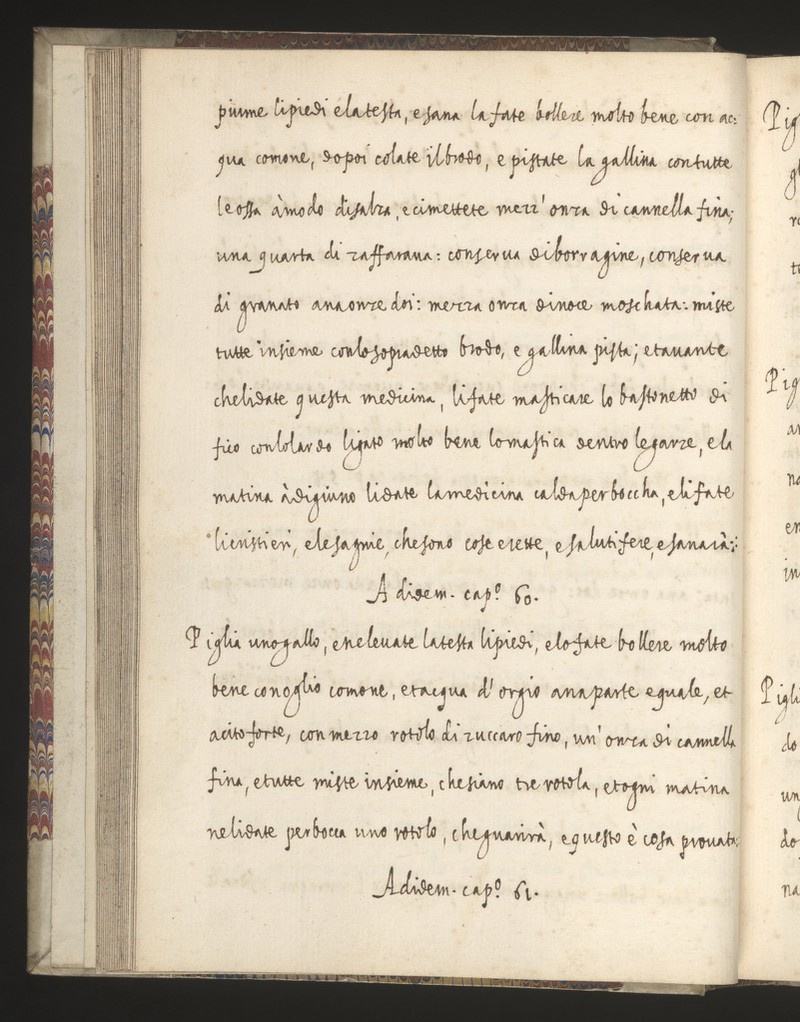 piume li piedi e la testa, e sana la fate bollere molto bene con ac:
qua comone, dopoi colate il brodo, e pistate la gallina con tutte
le ossa à modo di salza, e ci mettete mezz' onza di cannella fina;
una quarta di zaffarana: conserva di borragine, conserva
di granato ana onze doi: mezza onza di noce moschata: miste
tutte insieme con lo sopradetto brodo, e gallina pista; et avante
che li date questa medicina, li fate masticare lo bastonetto di
fico con lo lardo ligato molto bene lo mastica dentro le garze, e la
matina à digiuno li date la medicina calda per boccha, e li fate
li cristieri, e le sagnie, che sono cose erette, e salutifere, e sanarà:
A didem. cap.º 60.
Piglia uno gallo, e ne levate la testa li piedi, e lo fate bollere molto
bene con oglio comone, et acqua d' orgio ana parte eguale, et
acito forte, con mezzo rotolo di zuccaro fino, un' onza di cannella
fina, e tutte miste insieme, che siano tre rotola, et ogni matina
ne li date per bocca uno rotolo, che guarirà, e questo è cosa provata.
A didem. cap.º 61.
Pig
Pig
Pigli
do